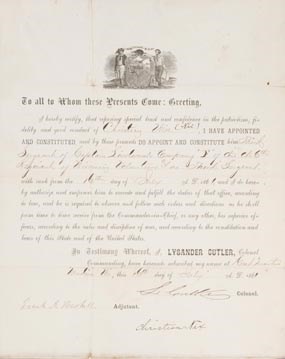 To all to Whom these Presents Come: Greeting,
I hereby certify, that reposing special trust and confidence in the patriotism, fi-
delity and good conduct of I HAVE APPOINTED
AND CONSTITUTED and by these presents DO APPOINT AND CONSTITUTE him
Sergeant of Captain Company of the
Regiment of Wisconsin Volunteers
with rank from the day of A. D. 1861 and do here-
by authorize and empower him to execute and fulfill the duties of that office, according
to law, and he is required to observe and follow such orders and directions as he shall
from time to time receive from the Commander-in-Chief, or any other, his superior of-
ficers, according to the rules and discipline of war, and according to the constitution and
laws of this State and of the United States.
In Testimony Whereof, I, LYSANDER CUTLER, Colonel
Commanding, have hereunto subscribed my name at
this day of A. D. 1861
Colonel.
Frank A. Haskell Adjutant.